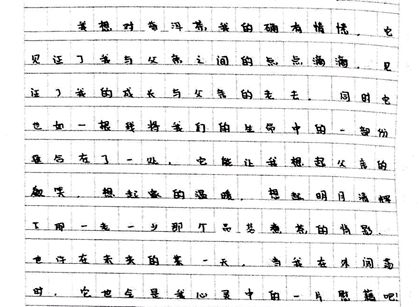 我想对普洱茶,我的确有情愫。它
见证了我与父亲之间的点点滴滴,见
证了我的成长与父亲的老去。同时它
也如一根线将我们的生命中的一部份
缝合在了一处。它能让我想起父亲的
微笑,想起家的温暖,想起明月清辉
下那一老一少那个品茗煮茶的情影。
也许在未来的某一天,当我在水间
时,它也会是我心灵中的一片慰藉吧!